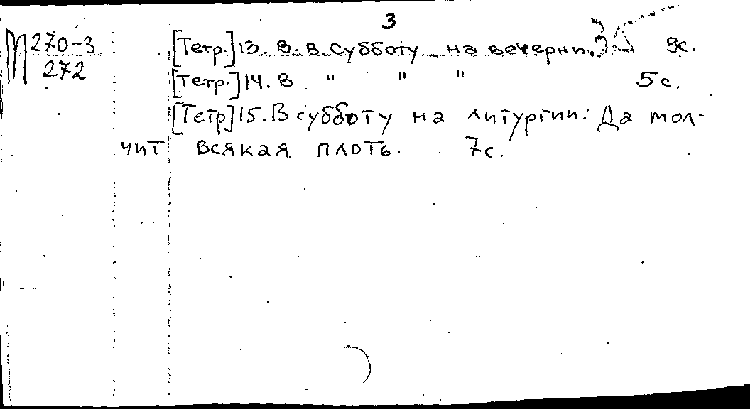 3
270-3 [Тетр.] 13. В субботу на вечерни. 9с.
272 [Тетр.] 14. В " " " 5с.
[Тетр] 15. В субботу на литургии: Да мол-
чит всякая плоть. 7с.